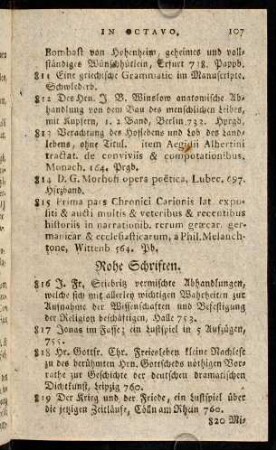 IN OCTAVO, 107
Bombast von Hohenheim, geheimes und voll-
ständiges Wünschhütlein, Erfurt 718. Pappb.
811 Eine griechische Grammatic im Manuscripte.
Schwledrb.
812 Des Hrn. J. B. Winslow anatomische Ab-
handlung von dem Bau des menschlichen Leibes,
mit Kupfern, 1. 2 Band, Berlin 732. Hprgb.
813 Verachtung des Hoflebens und Lob des Land-
lebens, ohne Titul. item Aegidii Albertini
tractat. de conviviis & compotationibus,
Monach, 164. Prgb.
814 D. G. Morhofi opera poëtica, Lubec. 697.
Hfrzband.
815 Prima pars Chronici Carionis lat. expo-
siti & aucti multis & veteribus & recentibus
historiis in narrationib. rerum græcar. ger-
manicar & ecclesiasticarum, a Phil. Melanch-
tone, Wittenb 564. Pb.
Rohe Schriften.
816 J. Fr. Stiebritz vermischte Abhandlungen,
welche sich mit allerley wichtigen Wahrheiten zur
Aufnahme der Wissenschaften und Befestigung
der Religion beschäftigen, Halle 753.
817 Jonas im Fasse; ein Lustspiel in 5 Aufzügen,
755.
818 Hr. Gottfr. Chr. Freiesleben kleine Nachlese
zu des berühmten Hrn. Gottscheds nöthigen Vor-
rathe zur Geschichte der deutschen dramatischen
Dichtkunst, Leipzig 760.
819 Der Krieg und der Friede, ein Lustspiel über
die jetzigen Zeitläufe, Cölln am Rhein 760.
820 Mi-